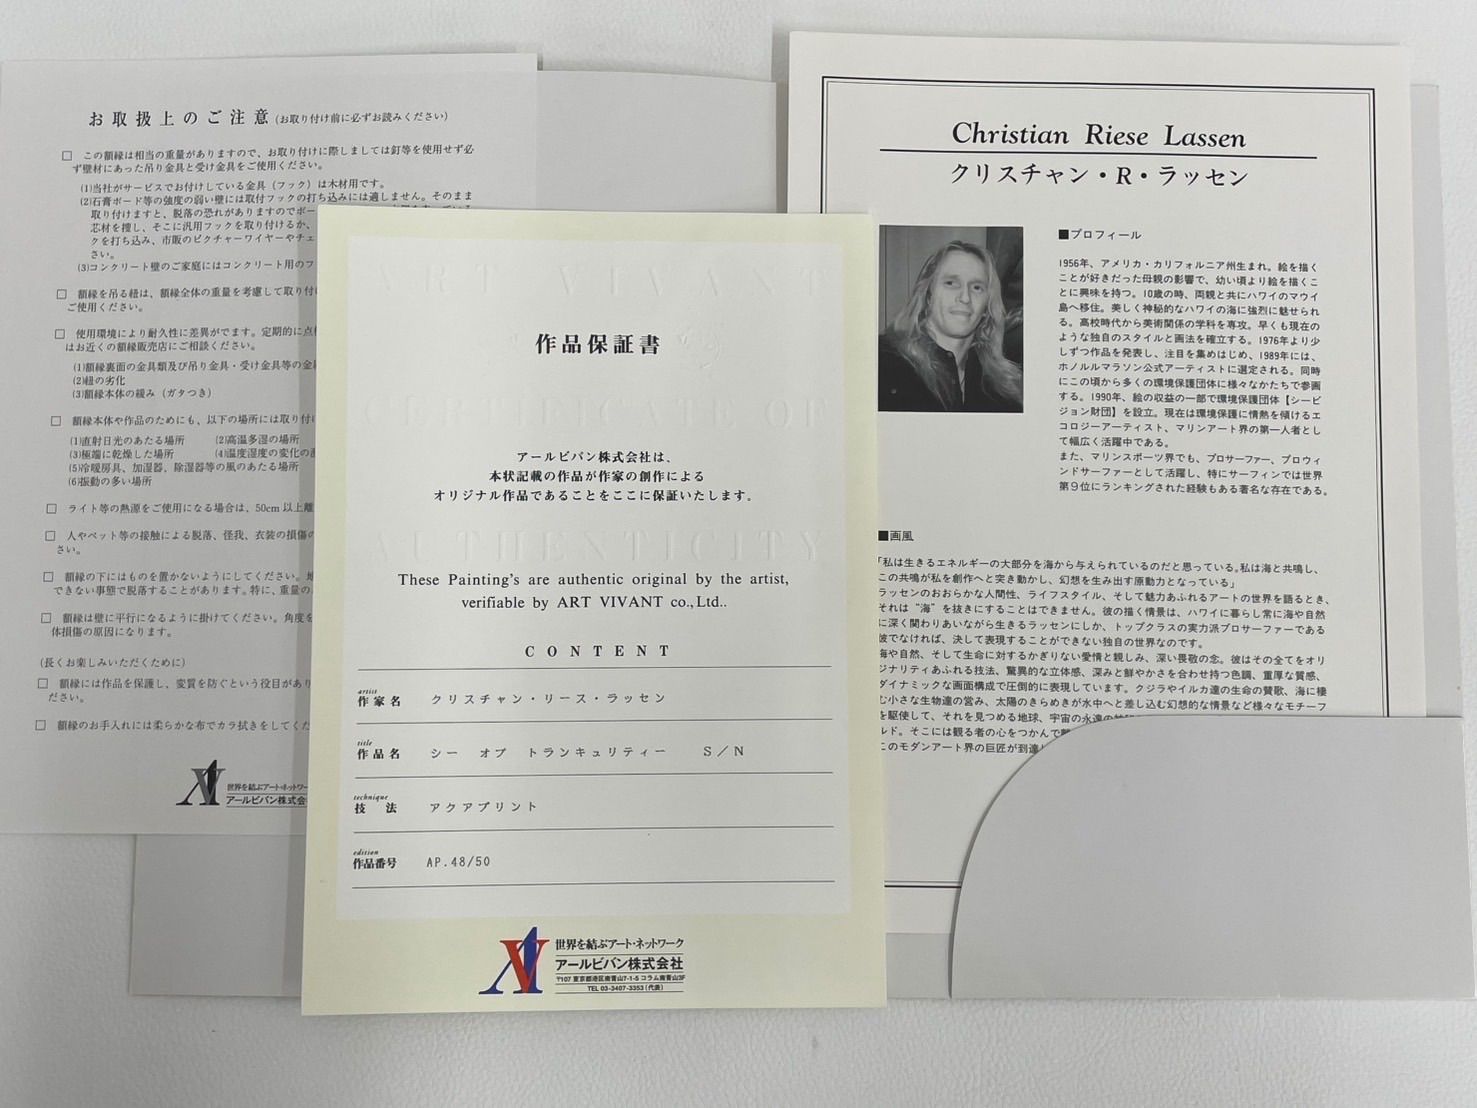 お取扱上のご注意 (お取り付け前に必ずお読みください)
□ この額縁は相当の重量がありますので、お取り付けに際しましては釘等を使用せず必
ず壁材にあった吊り金具と受け金具をご使用ください。
(1)当社がサービスでお付けしている金具（フック）は木材用です。
(2)石膏ボード等の強度の弱い壁には取付フックの打ち込みには適しません。そのまま
取り付けますと、脱落の恐れがありますのでボー
芯材を捜し、そこに汎用フックを取り付けるか、
クを打ち込み、市販のピクチャーワイヤーやチェ
さい。
(3)コンクリート壁のご家庭にはコンクリート用のフ
□ 額縁を吊る紐は、額縁全体の重量を考慮して取り付け
ご使用ください。
□ 使用環境により耐久性に差異がでます。定期的に点検
はお近くの額縁販売店にご相談ください。
(1)額縁裏面の金具類及び吊り金具・受け金具等の金
(2)紐の劣化
(3)額縁本体の緩み（ガタつき）
□ 額縁本体や作品のためにも、以下の場所には取り付け
(1)直射日光のあたる場所 (2)高温多湿の場所
(3)極端に乾燥した場所 (4)温度湿度の変化の
(5)冷暖房具、加湿器、除湿器等の風のあたる場所
(6)振動の多い場所
□ ライト等の熱源をご使用になる場合は、50cm以上離
□ 人やペット等の接触による脱落、怪我、衣装の損傷の
さい。
□ 額縁の下にはものを置かないようにしてください。地
できない事態で脱落することがあります。特に、重量の
□ 額縁は壁に平行になるように掛けてください。角度を
体損傷の原因になります。
(長くお楽しみいただくために)
□ 額縁には作品を保護し、変質を防ぐという役目があり
ださい。
□ 額縁のお手入れには柔らかな布でカラ拭きをしてくだ
世界を結ぶアート・ネットワー
アールビバン株式会
ART VIVANT
作品保証書
CERTIFICATE OF
アールビバン株式会社は、
本状記載の作品が作家の創作による
オリジナル作品であることをここに保証いたします。
AUTHENTICITY
These Painting's are authentic original by the artist,
verifiable by ART VIVANT co.,Ltd..
CONTENT
artist
作家名 クリスチャン・リース・ラッセン
title
作品名 シー オブ トランキュリティー S／N
technique
技法 アクアプリント
edition
作品番号 AP.48/50
世界を結ぶアート・ネットワーク
アールビバン株式会社
〒107 東京都港区南青山7-1-5 コラム南青山3F
TEL 03-3407-3353 (代表)
Christian Riese Lassen
クリスチャン・R・ラッセン
■プロフィール
1956年、アメリカ・カリフォルニア州生まれ。絵を描く
ことが好きだった母親の影響で、幼い頃より絵を描くこ
とに興味を持つ。10歳の時、両親と共にハワイのマウイ
島へ移住。美しく神秘的なハワイの海に強烈に魅せられ
る。高校時代から美術関係の学科を専攻。早くも現在の
ような独自のスタイルと画法を確立する。1976年より少
しずつ作品を発表し、注目を集めはじめ、1989年には、
ホノルルマラソン公式アーティストに選定される。同時
にこの頃から多くの環境保護団体に様々なかたちで参画
する。1990年、絵の収益の一部で環境保護団体【シービ
ジョン財団】を設立。現在は環境保護に情熱を傾けるエ
コロジーアーティスト、マリンアート界の第一人者とし
て幅広く活躍中である。
また、マリンスポーツ界でも、プロサーファー、プロウィ
ンドサーファーとして活躍し、特にサーフィンでは世界
第9位にランキングされた経験もある著名な存在である。
■画風
「私は生きるエネルギーの大部分を海から与えられているのだと思っている。私は海と共鳴し、
この共鳴が私を創作へと突き動かし、幻想を生み出す原動力となっている」
ラッセンのおおらかな人間性、ライフスタイル、そして魅力あふれるアートの世界を語るとき、
それは“海”を抜きにすることはできません。彼の描く情景は、ハワイに暮らし常に海や自然
に深く関わりあいながら生きるラッセンにしか、トップクラスの実力派プロサーファーである
彼でなければ、決して表現することができない独自の世界なのです。
海や自然、そして生命に対するかぎりない愛情と親しみ、深い畏敬の念。彼はその全てをオリ
ジナリティあふれる技法、驚異的な立体感、深みと鮮やかさを合わせ持つ色調、重厚な質感、
ダイナミックな画面構成で圧倒的に表現しています。クジラやイルカ達の生命の賛歌、海に棲
む小さな生物達の営み、太陽のきらめきが水中へと差し込む幻想的な情景など様々なモチーフ
を駆使して、それを見つめる地球、宇宙の永遠の
ルド。そこには観る者の心をつかんで
このモダンアート界の巨匠が到達